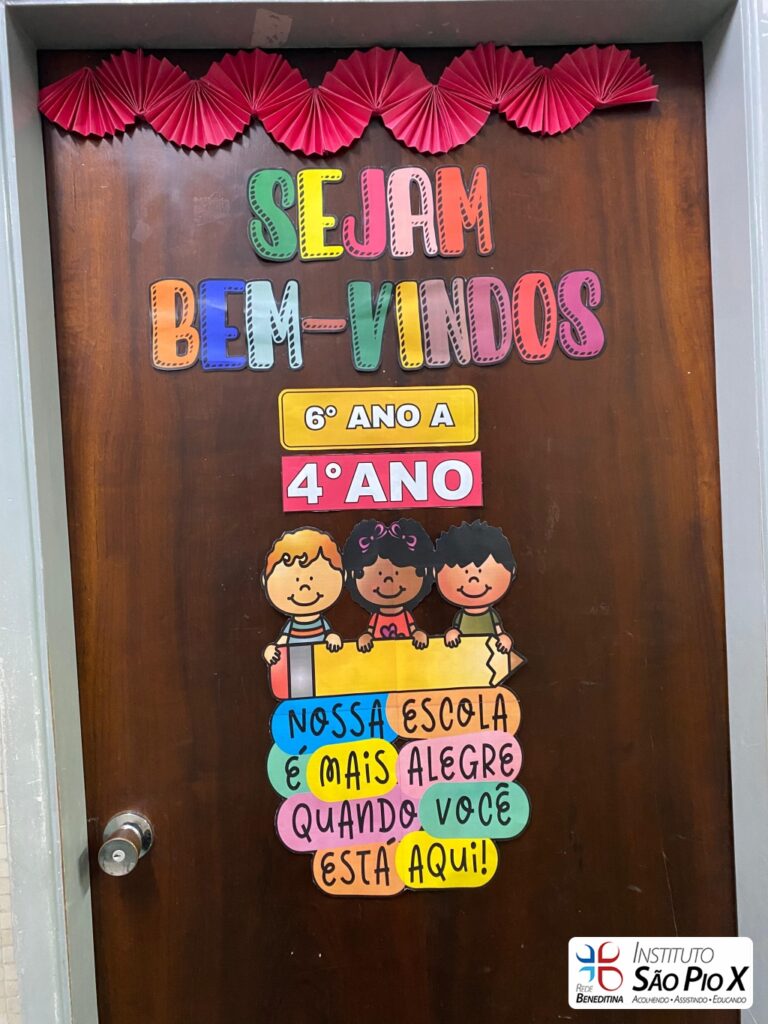 SEJAM
BEM-VINDOS
6° ANO A
4°ANO
NOSSA ESCOLA
É MAIS ALEGRE
QUANDO VOCÊ
ESTÁ AQUI!
INSTITUTO
SÃO PIO X
REDE
BENEDITINA
ACOLHENDO • ASSISTINDO • EDUCANDO